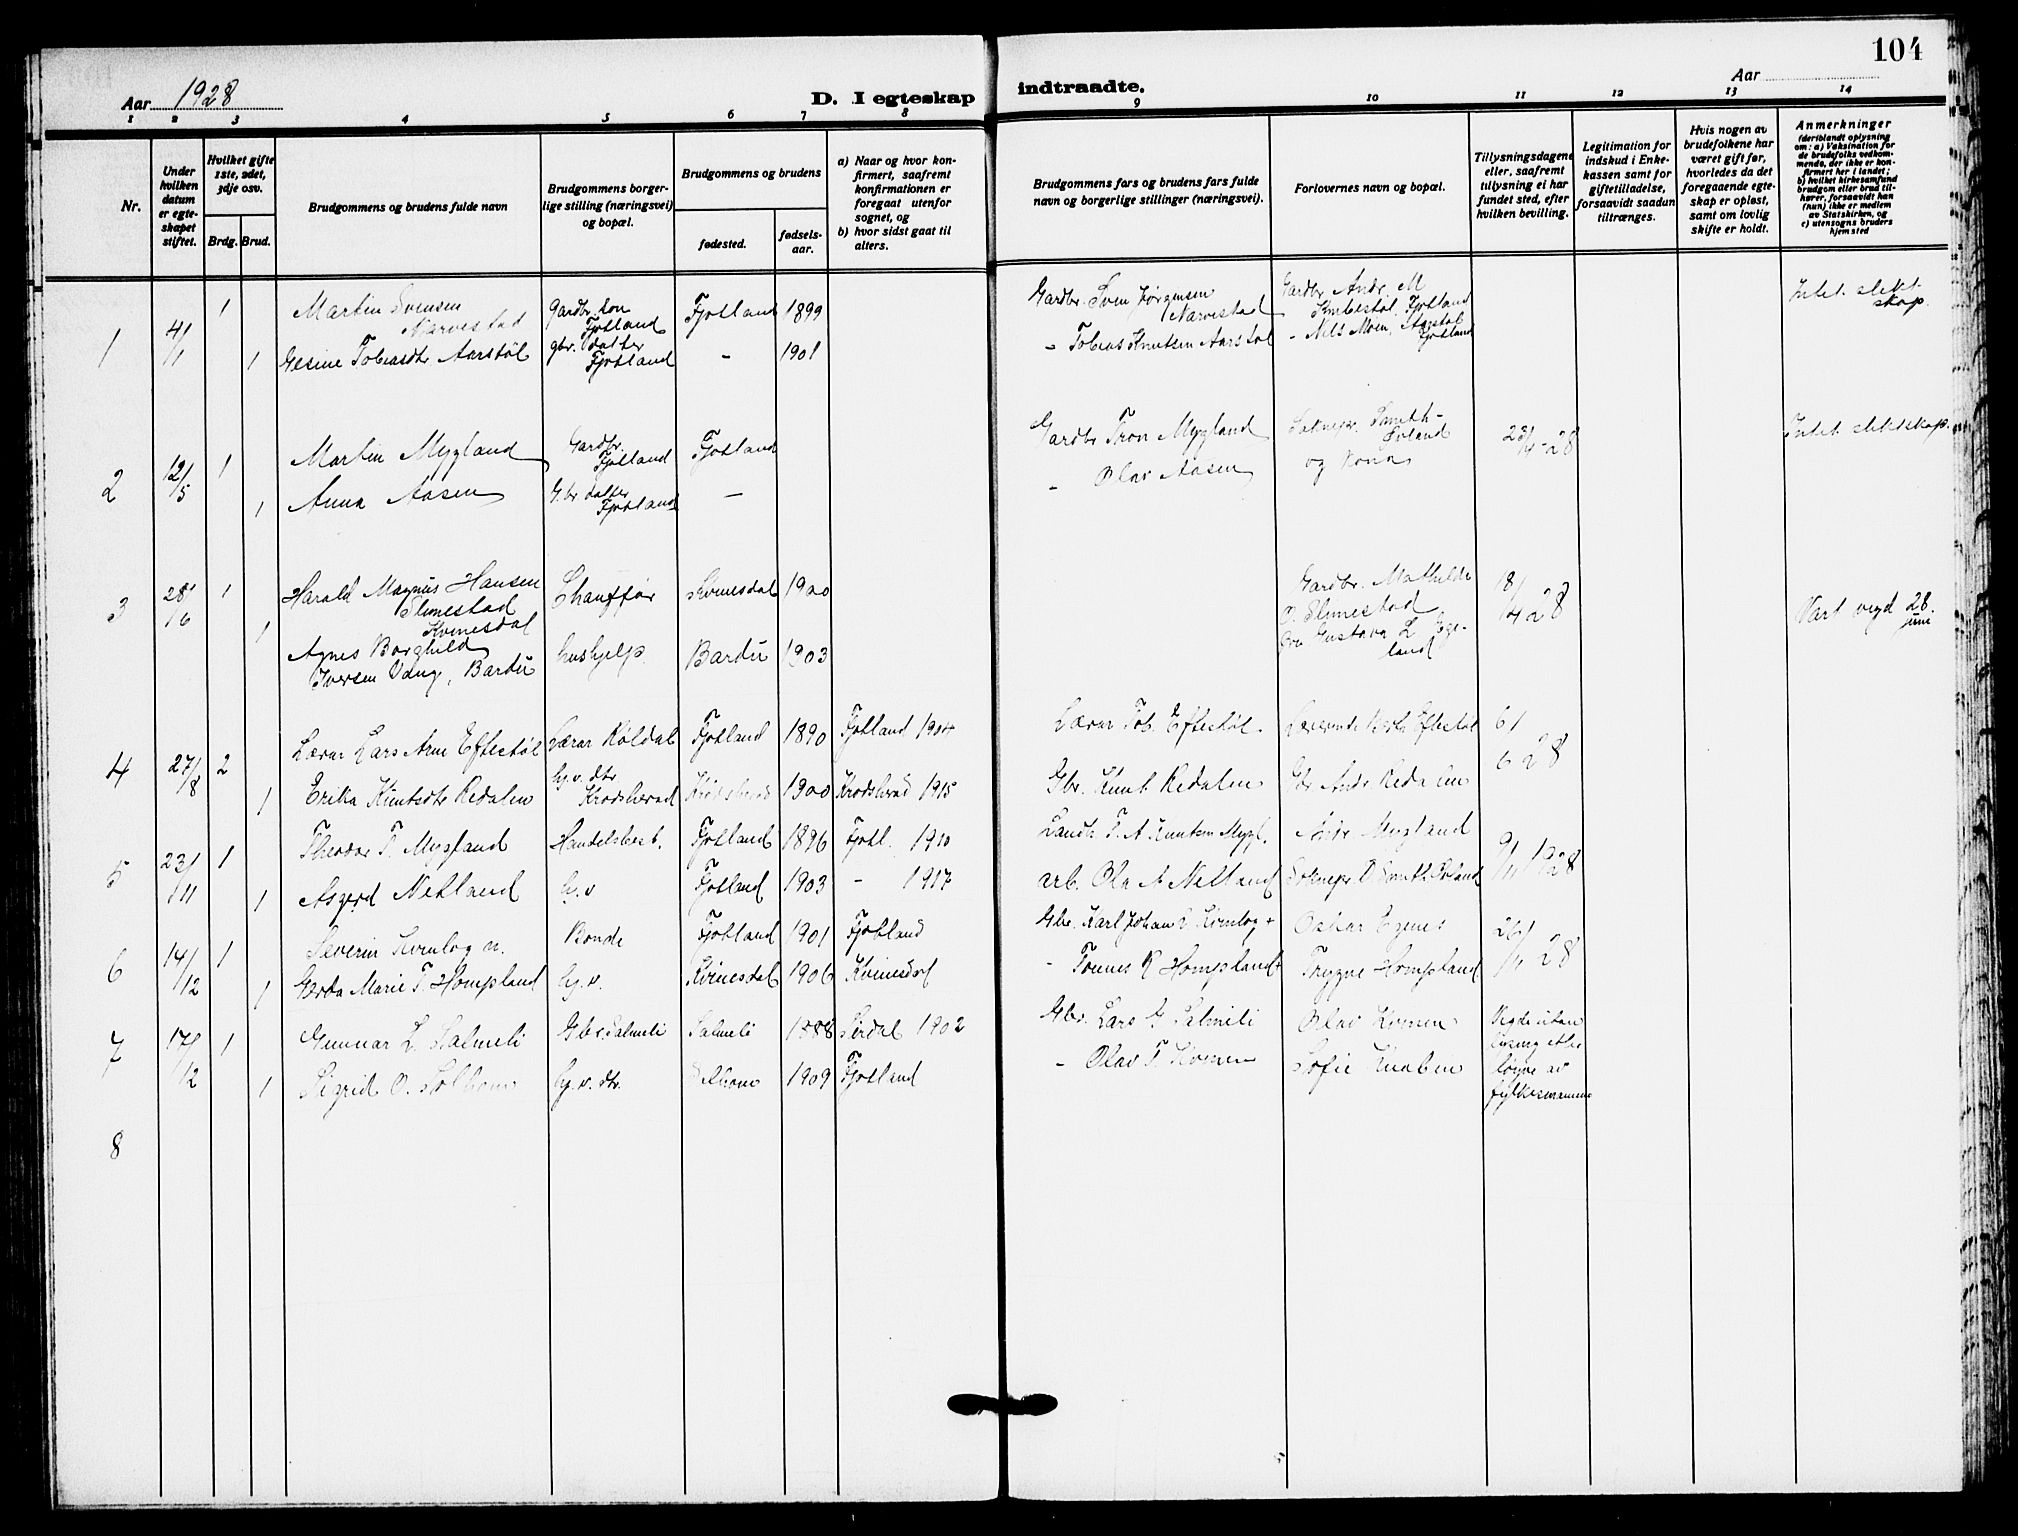 104
Aar 1928
D. I egteskap indtraadte.
Aar
1 2 3 4 5 6 7 8 9 10 11 12 13 14
Nr.
Under hvilken datum er egteskapet stiftet.
Hvilket gifte 1ste, 2det, 3dje osv.
Brdg. Brud.
Brudgommens og brudens fulde navn
Brudgommens borgerlige stilling (næringsvei) og bopæl.
Brudgommens og brudens
fødested.
fødselsaar.
a) Naar og hvor konfirmert, saafremt konfirmationen er foregaat utenfor sognet, og
b) hvor sidst gaat til alters.
Brudgommens fars og brudens fars fulde navn og borgerlige stillinger (næringsvei).
Forlovernes navn og bopæl.
Tillysningsdagene eller, saafremt tillysning ei har fundet sted, efter hvilken bevilling.
Legitimation for indskud i Enkekassen samt for giftetilladelse, forsaavidt saadan tiltrænges.
Hvis nogen av brudefolkene har været gift før, hvorledes da det foregaaende egteskap er opløst, samt om lovlig skifte er holdt.
Anmerkninger (deriblandt oplysning om: a) Vaksination for de brudefolks vedkommende, der ikke er konfirmert her i landet; b) hvilket kirkesamfund brudgom eller brud tilhører, forsaavidt han (hun) ikke er medlem av Statskirken, og c) utensogns bruders hjemsted
1 4/1 1 Martin Svensen Narvestad Gardbr. søn Fjotland Fjotland 1899 Gardbr. Sven Jørgensen Narvestad Gardbr Andr. M Knibestøl, Fjotland Intet slektskap.
1 Gesine Tobiasdtr Aarstøl gbr. datter Fjotland - 1901 - Tobias Knutsen Aarstøl - Nils Moen, Aarstøl Fjotland
2 12/5 1 Martin Mygland Gardbr. Fjotland Fjotland Gardbr Tron Mygland Soknepr. Smith-Svland og Kona 23/4-28 Intet slektskap.
1 Anna Aasen G.br. datter Fjotland - - Olav Aasen
3 28/6 1 Harald Magnus Hansen Slimestad Kvinesdal Chauffør Kvinesdal 1900 Gardbr. Mathilde O. Slimestad 18/4 28 Vart vigd 28. juni
1 Agnes Borghild Iversen Vang, Bardu hushjelp Bardu 1903 Gustava L. Egeland
4 27/8 2 Lærar Lars Arne Eftestøl Lærar Røldal Fjotland 1890 Fjotland 1904 Lærar Tob. Eftestøl. Eftestøl 6/6 28
1 Erika Knutsdtr Redalen hj.v. dtr. Krødsherad Krødsherad 1900 Krødsherad 1915 Gbr. Knut Redalen Gbr Andr Redalen
5 23/11 1 Theodor T. Mygland Handelsbest. Fjotland 1896 Fjotl. 1910 Landh. T. A Knutsen Mygl. Andr Mygland 9/11 1928
1 Asgerd Netland hj. v Fjotland 1903 - 1917 arb. Ola A. Netland Soknepr. D Smith Svland
6 14/12 1 Severin Kvinlog n. Bonde Fjotland 1901 Fjotland Gbr. Karl Johan Kvinlog + Oskar Egenes 26/11 28
1 Gerda Marie T. Hompland hj. v. Kvinesdal 1906 Kvinesdal - Tønnes R Hompland + Trygve Hompland
7 17/12 1 Gunnar L. Salmeli Gbr. Salmeli Salmeli 1888 Sirdal 1902 Gbr. Lars G Salmeli Olav Kvinen Vigde utan lysing etter løyve av fylkesmannen
1 Sigrid O. Solhom hj. v. dtr. Solhom 1909 Fjotland - Olav T. Kvinen Sofie Knaben
8